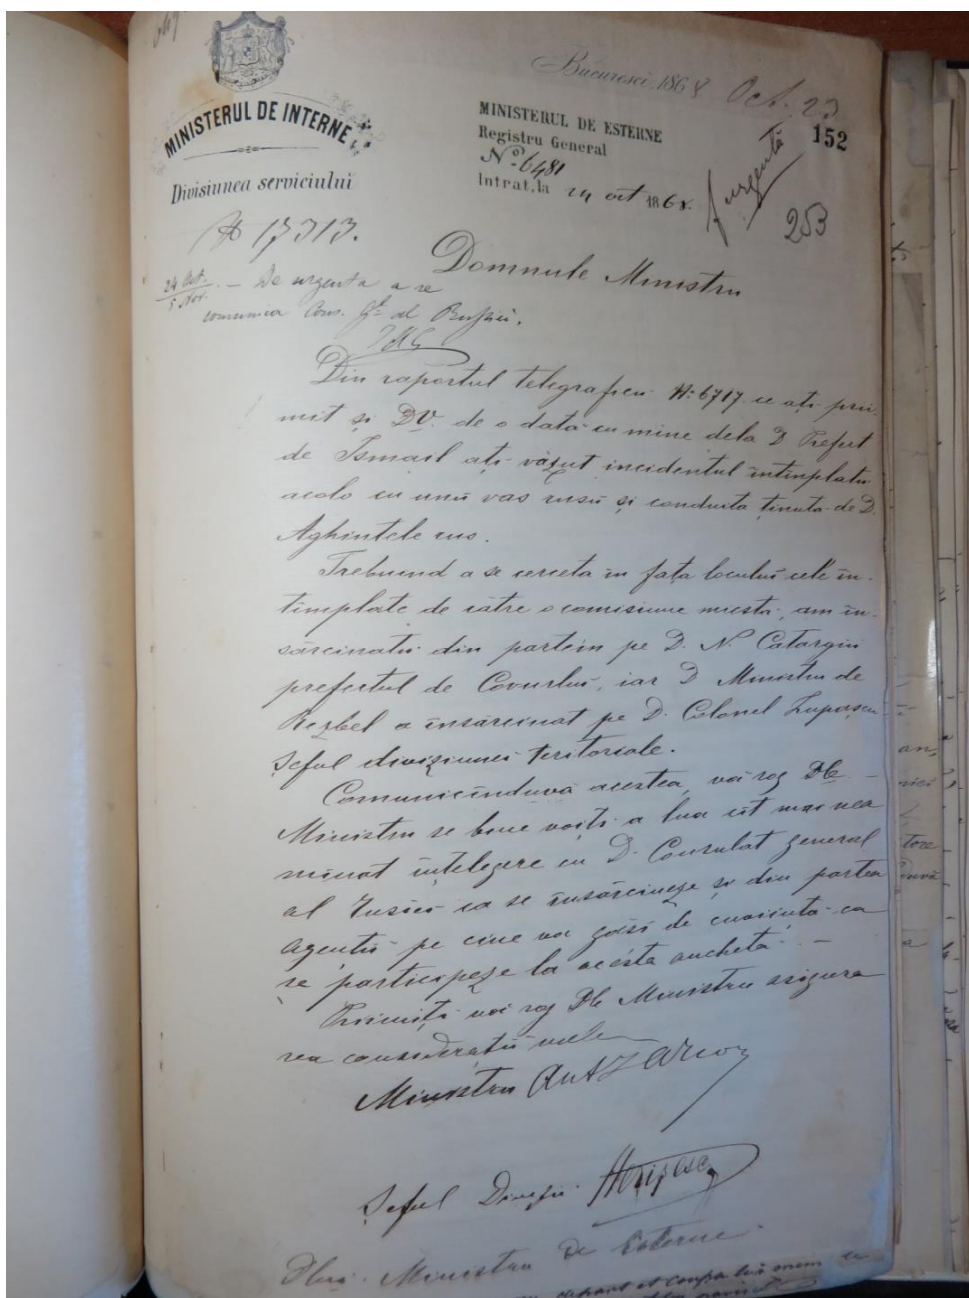 Bucuresci, 1868 Oct. 23
MINISTERUL DE INTERNE
Divisiunea serviciului
N 17313.
MINISTERUL DE ESTERNE
Registru General
No. 6481
Intrat, la 24 oct 1868.
urgentă
152
253
24 Oct.
5 Nov. — De urgenta a se
comunica Cons. Gl. al Russiei.
Domnule Ministru
Din raportul telegraficu N: 6717 ce ați pri-
mit și DV. de o dată cu mine dela D Prefect
de Ismail ați văḑut incidentul întîmplatu
acolo cu unŭ vas rusŭ și conduita ținuta de D.
Aghintele rus.
Trebuind a se cerceta în fața locului cele în-
timplate de către o comisiune micsta, am în-
sărcinatu din partem pe D. N. Catargiu
prefectul de Covurlui, iar D Ministru de
Rezbel a însărcinat pe D. Colonel Lupașcu
Șeful diviziunei teritoriale.
Comunicînduvă acestea, vă rog Dle
Ministru se bine voiți a lua cît mai nea
mînat înțelegere cu D. Consulat general
al Rusiei ca se însărcineze și din partea
agentŭ pe cine va găsi de cuviință ca
se participeze la acésta anchetă. —
Primiți vă rog Dle Ministru asigura
rea consideratii mele
Ministru
Șeful Diviziei
Dlui. Ministru De Esterne